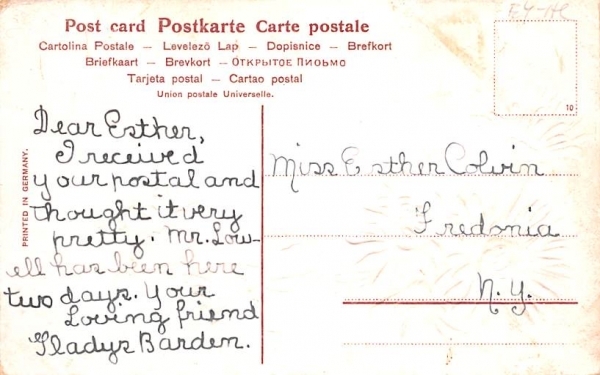 EY-HC
Post card Postkarte Carte postale
Cartolina Postale – Levelező Lap – Dopisnice – Brefkort
Briefkaart – Brevkort – Открытое Письмо
Tarjeta postal – Cartao postal
Union postale Universelle.
10
PRINTED IN GERMANY.
Dear Esther,
I received
your postal and
thought it very
pretty. Mr. Low-
ell has been here
two days. Your
Loving friend
Gladys Barden.
Miss Esther Colvin
Fredonia
N.Y.